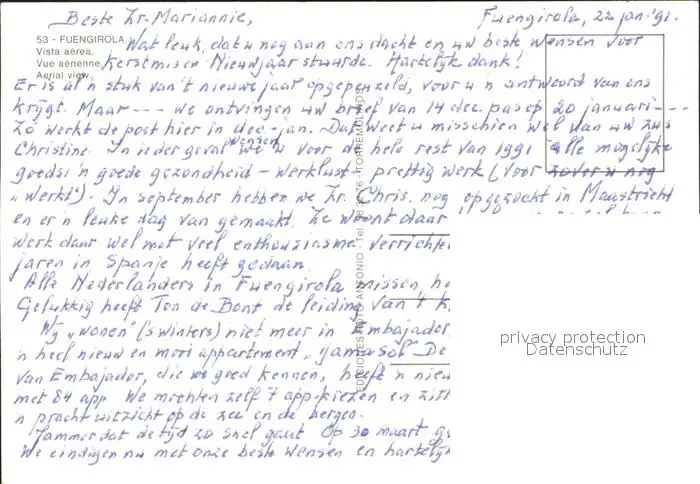 Beste Zr. Mariannie,
Fuengirola, 22 jan. '91.
53 - FUENGIROLA
Vista aérea.
Vue aérienne.
Aerial view.
Wat leuk, dat u nog aan ons dacht en uw beste wensen voor
Kerstmis en Nieuwjaar stuurde. Hartelijk dank!
Er is al 'n stuk van 't nieuwe jaar opgepeuzeld, voor u 'n antwoord van ons
krijgt. Maar --- we ontvingen uw brief van 14 dec. pas op 20 januari ---
Zó werkt de post hier in dec.-jan. Dat weet u misschien wel van uw zus
Christine. In ieder geval wensen we u voor de hele rest van 1991 alle mogelijke
goeds: 'n goede gezondheid - werklust - prettig werk (voor zover u nog
"werkt"). In september hebben we Zr. Chris. nog opgezocht in Maastricht
en er 'n leuke dag van gemaakt. Ze woont daar
werk daar wel met veel enthousiasme verrichte
jaren in Spanje heeft gedaan.
Alle Nederlanders in Fuengirola missen, h
Gelukkig heeft Ton de Bont de leiding van 't k
Wij "wonen" ('s winters) niet meer in Embajador
'n heel nieuw en mooi appartement "Yamasol" De
van Embajador, die we goed kennen, heeft 'n nieu
met 84 app. We mochten zelf 't app. kiezen en zitt
'n pracht uitzicht op de zee en de bergen.
Jammer dat de tijd zo snel gaat. Op 30 maart g
We eindigen nu met onze beste wensen en hartelijk
EDICIONES FOTO ANTONIO - Tel. 38 - TORREMOLINOS
privacy protection
Datenschutz